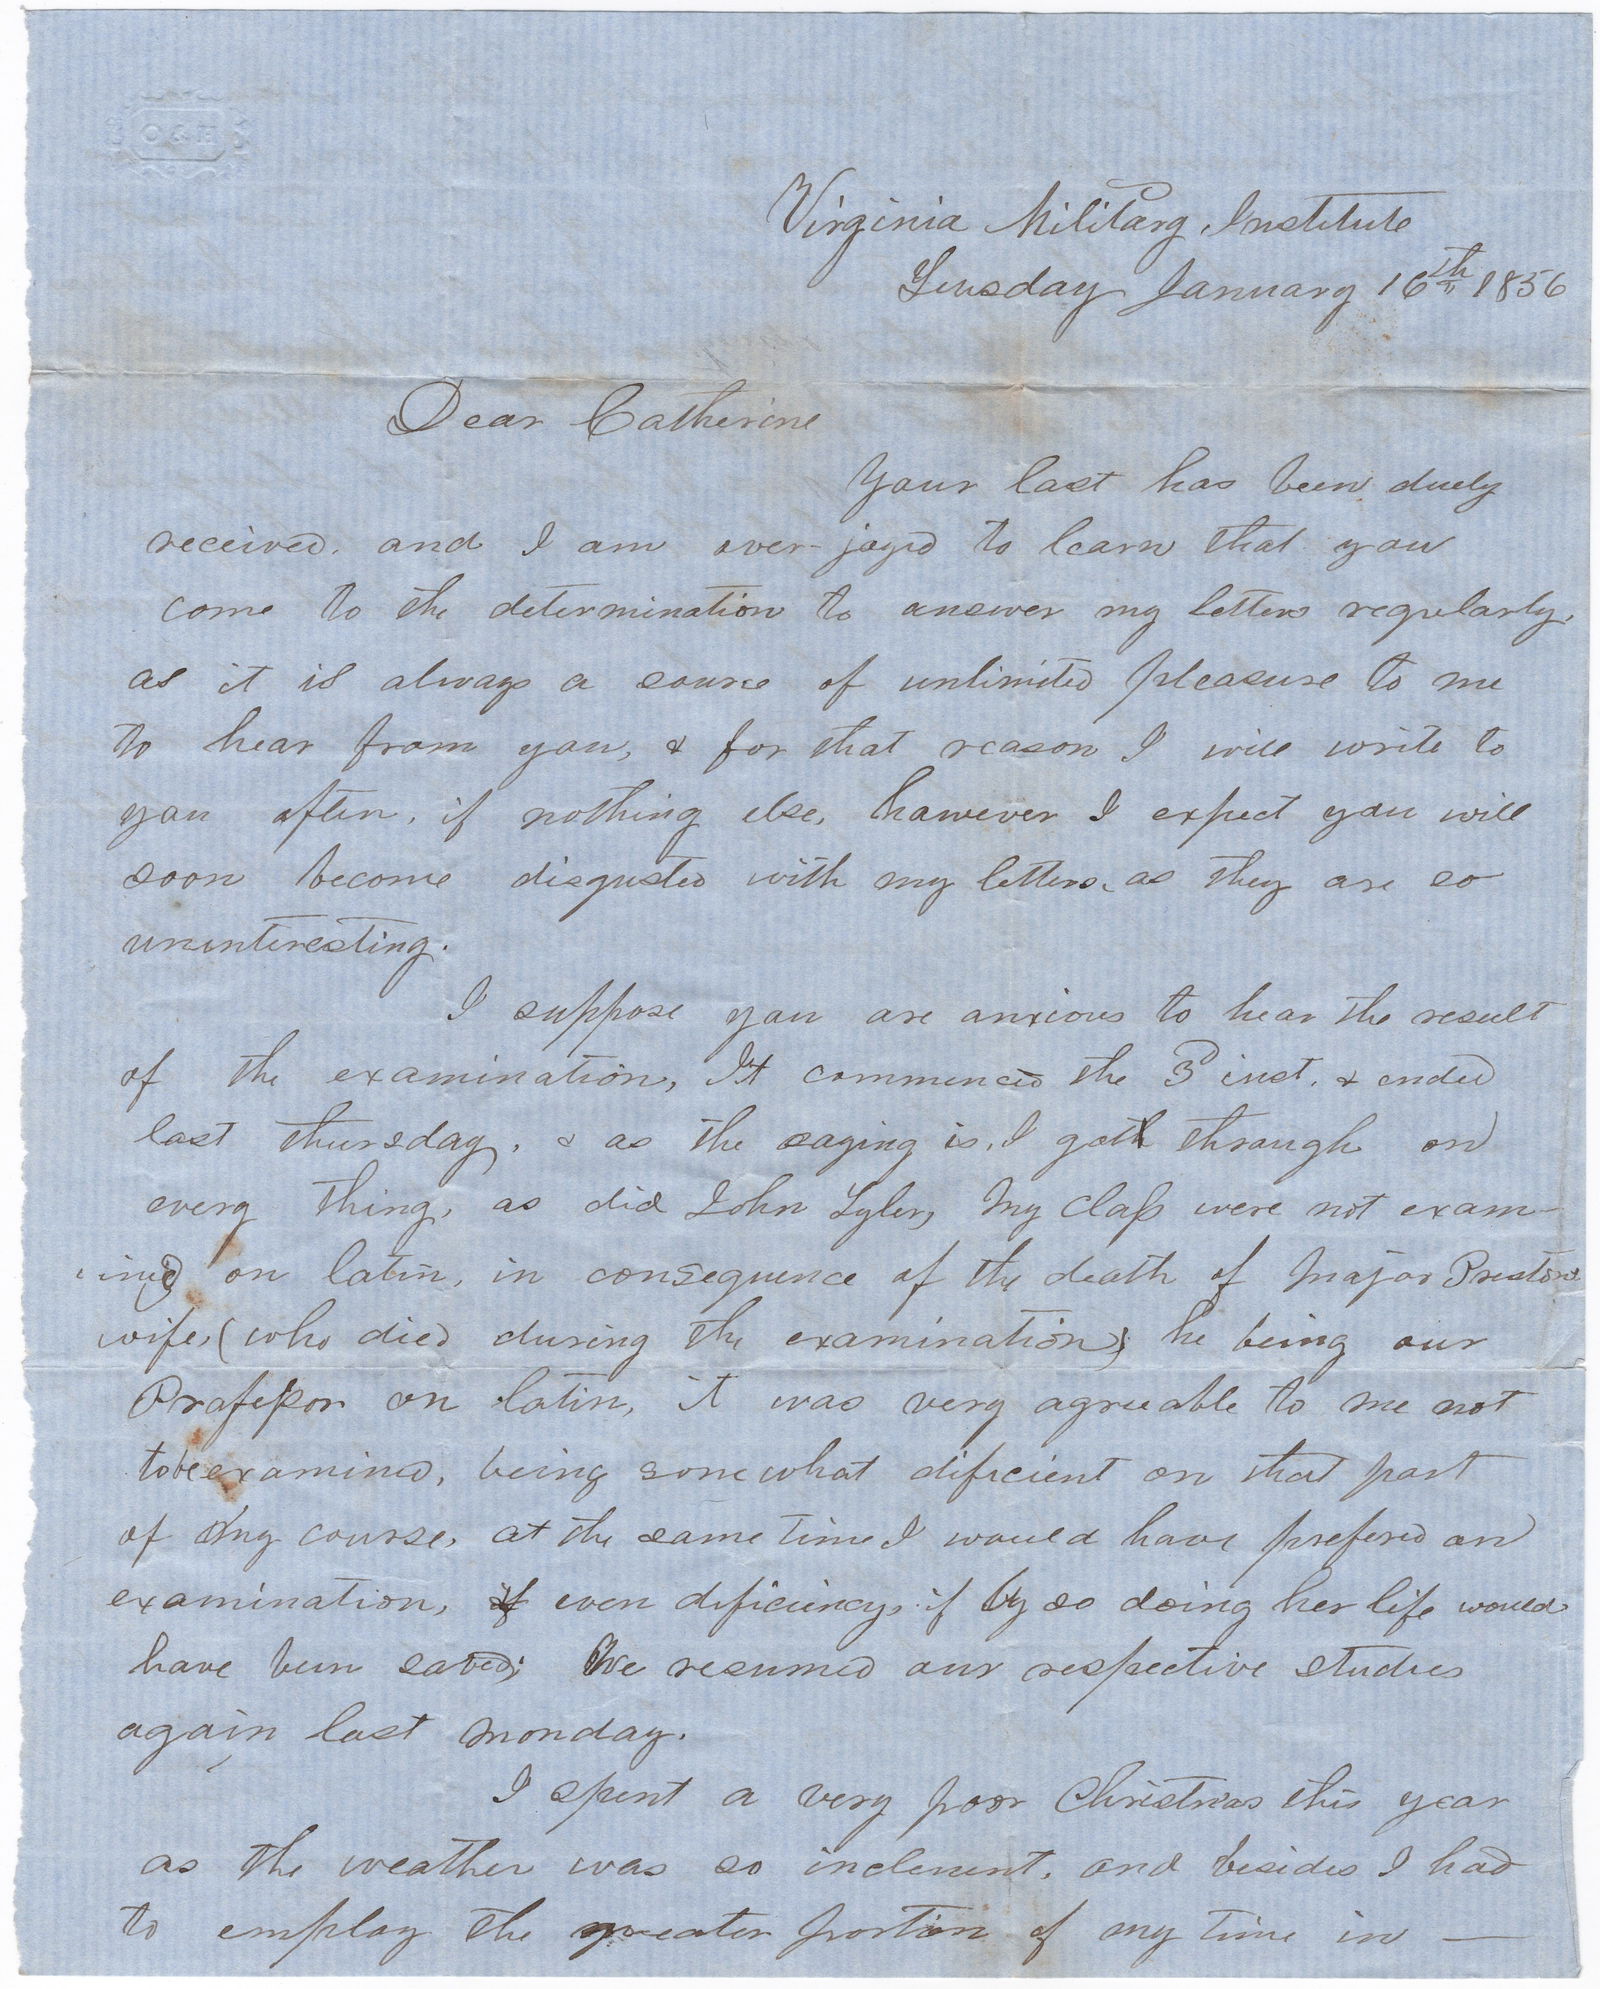 Virginia Military Institute
Tuesday January 16th 1856
Dear Catherine
Your last has been duely
received. and I am over-joyed to learn that you
come to the determination to answer my letters regularly.
as it is always a source of unlimited pleasure to me
to hear from you, & for that reason I will write to
you often, if nothing else, however I expect you will
soon become disgusted with my letters, as they are so
uninteresting.
I suppose you are anxious to hear the result
of the examination, It commenced the 3d inst. & ended
last thursday, & as the saying is, I got through on
every thing, as did John Tyler, My class were not exam-
ined on latin, in consequence of the death of Major Prestons
wife, (who died during the examination) he being our
Professor on latin, it was very agreeable to me not
to be examined, being somewhat dificient on that part
of my course, at the same time I would have prefered an
examination, even dificiency, if by so doing her life would
have been saved; We resumed our respective studies
again last monday.
I spent a very poor Christmas this year
as the weather was so inclement, and besides I had
to employ the greater portion of my time in —